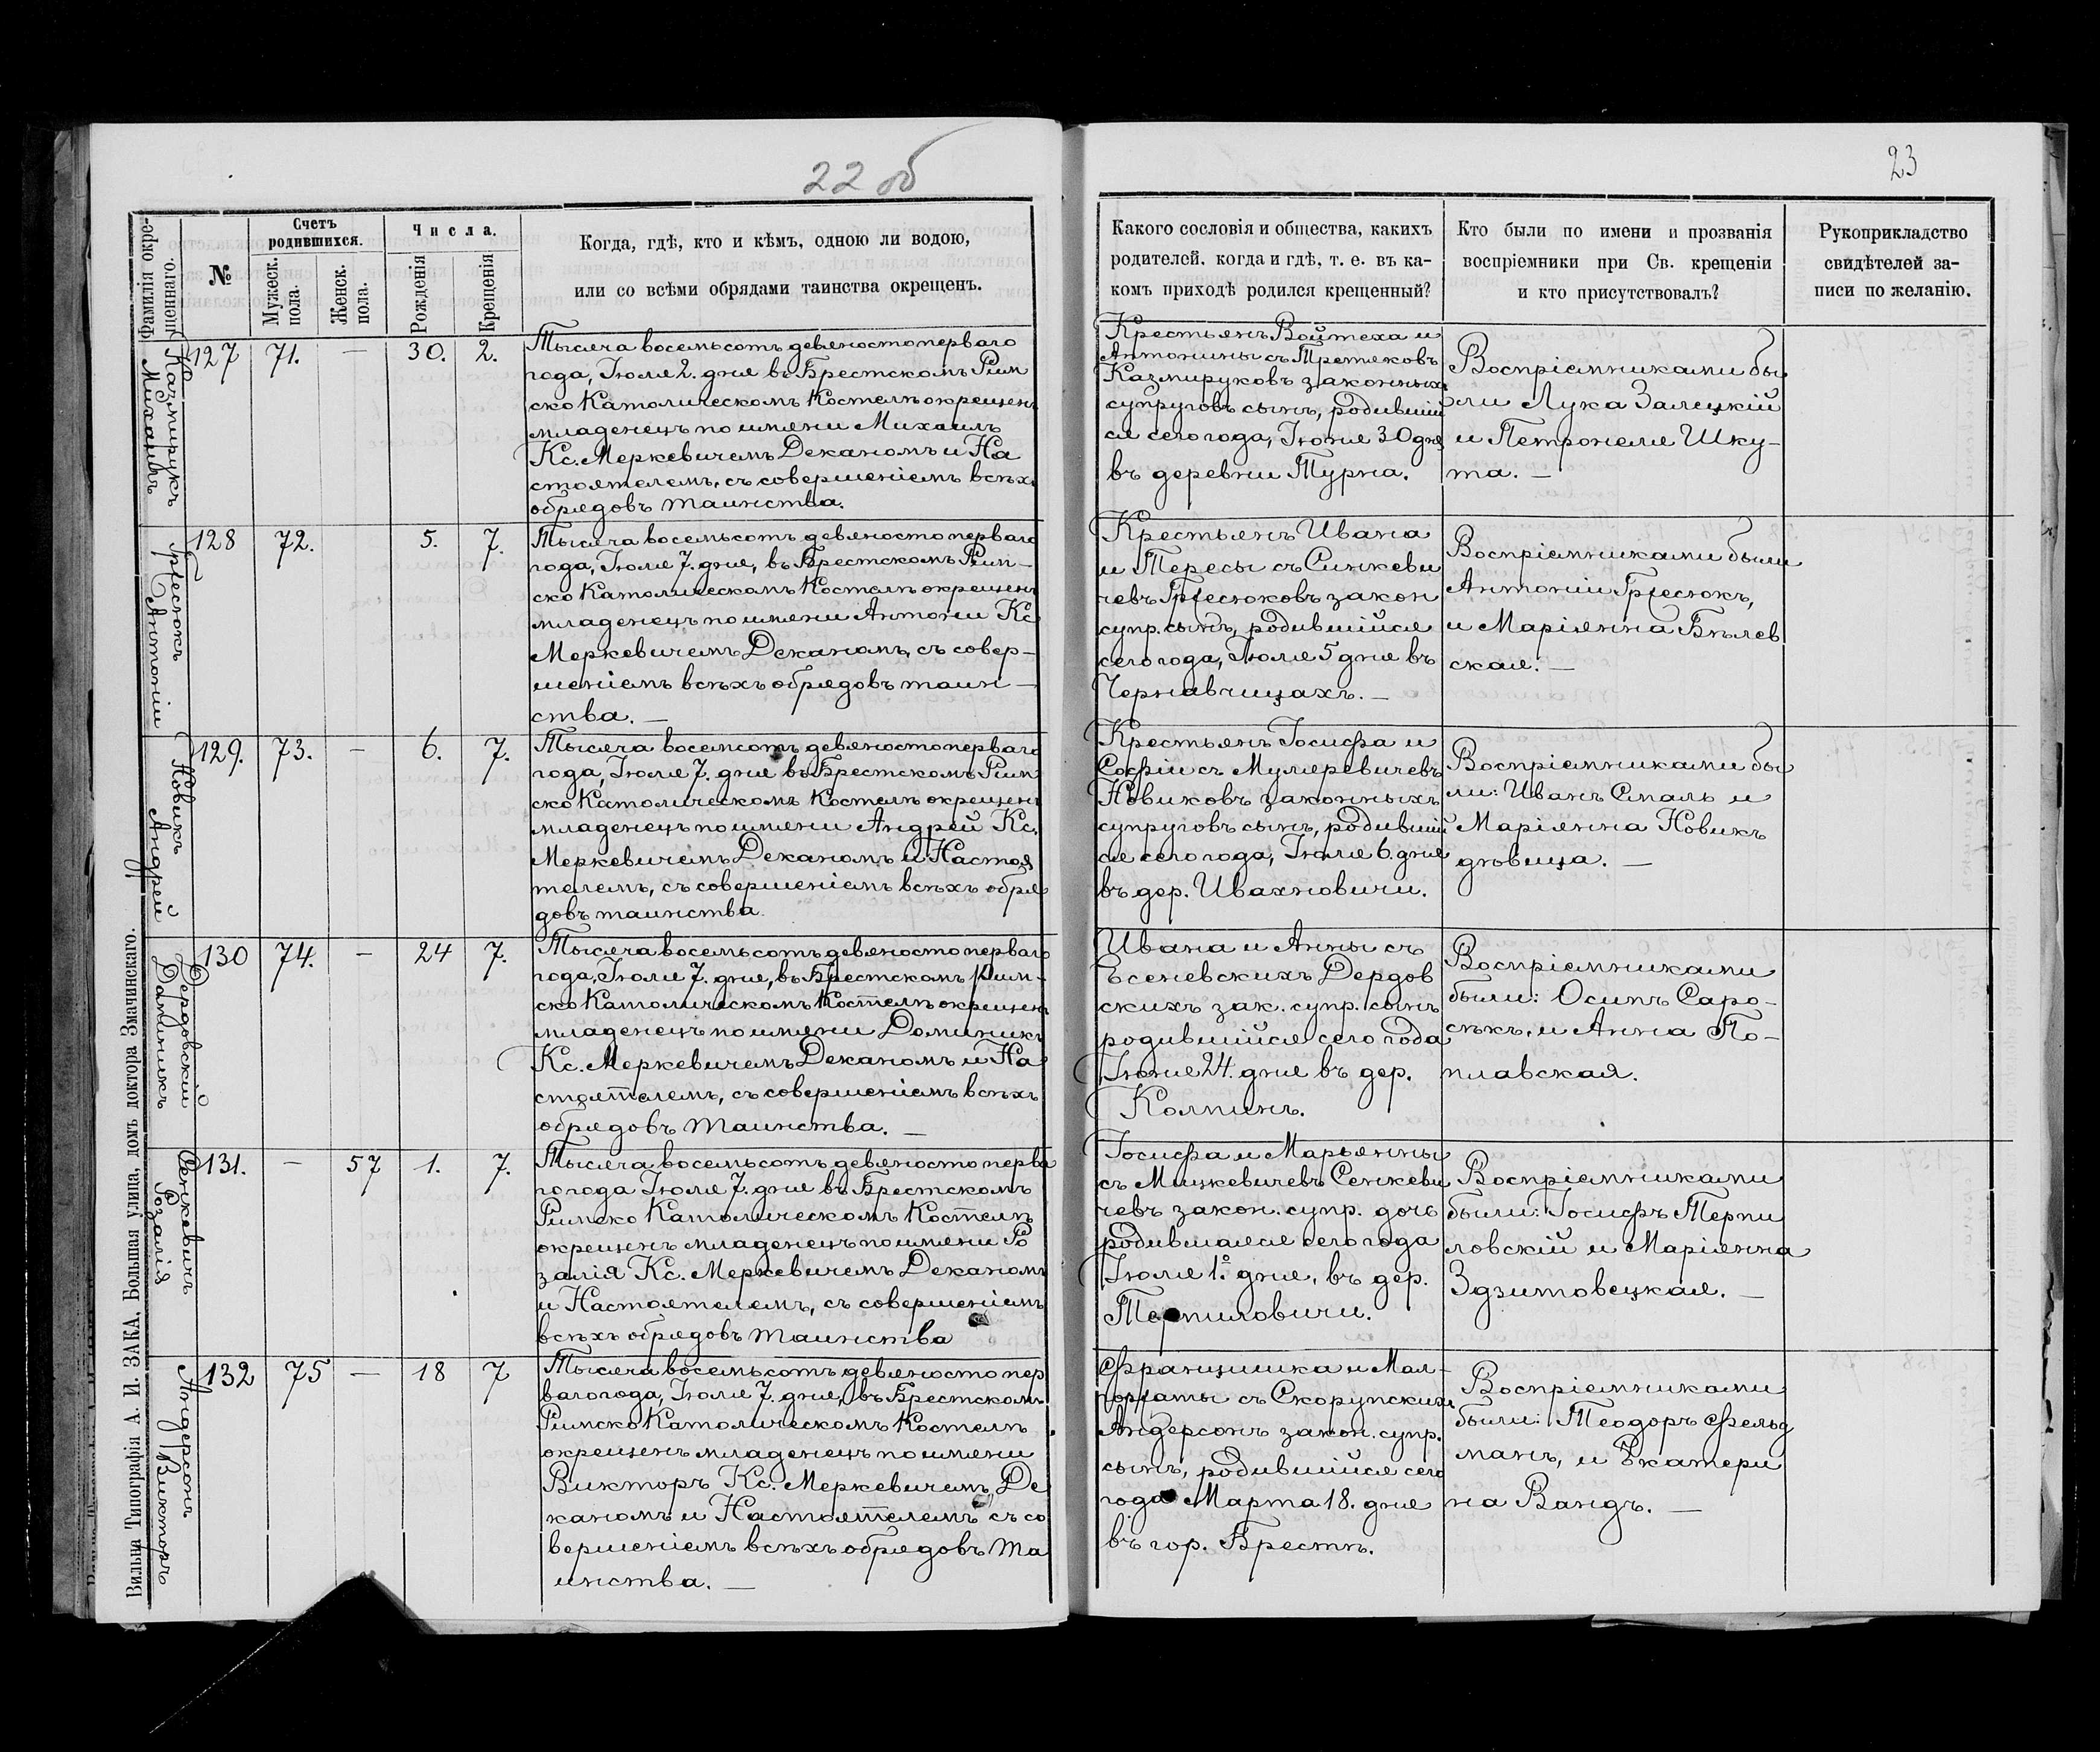 22 об
23
Фамилія окре-
щеннаго.
№
Счетъ
родившихся.
Мужеск.
пола.
Женск.
пола.
Числа.
Рожденія
Крещенія
Когда, гдѣ, кто и кѣмъ, одною ли водою,
или со всѣми обрядами таинства окрещенъ.
Какого сословія и общества, какихъ
родителей, когда и гдѣ, т. е. въ ка-
комъ приходѣ родился крещенный?
Кто были по имени и прозванія
воспріемники при Св. крещеніи
и кто присутствовалъ?
Рукоприкладство
свидѣтелей за-
писи по желанію.
Казмирукъ
Михаилъ
127 71. — 30. 2.
Тысяча восемьсотъ девяносто перваго
года, Іюля 2. дня въ Брестскомъ Рим
ско Католическомъ Костелѣ окрещенъ
младенецъ по имени Михаилъ
Кс. Меркевичемъ Деканомъ и На
стоятелемъ, съ совершеніемъ всѣхъ
обрядовъ таинства.
Крестьянъ Войтеха и
Антонины съ Третяковъ
Казмируковъ законныхъ
супруговъ сынъ, родившій
ся сего года, Іюня 30 дня
въ деревни Турна.
Воспріемниками бы
ли Лука Залецкій
и Петронеля Шку-
та. —
Грｅсюкъ
Антоній
128 72. 5. 7.
Тысяча восемьсотъ девяносто перваго
года, Іюля 7. дня, въ Брестскомъ Рим-
ско Католическомъ Костелѣ окрещенъ
младенецъ по имени Антони Кс
Меркевичемъ Деканомъ, съ совер-
шеніемъ всѣхъ обрядовъ таин-
ства. —
Крестьянъ Ивана
и Тересы съ Синкеви
чевъ закон
супр. сынъ, родившійся
сего года, Іюля 5 дня въ
Чернавчицахъ. —
Воспріемниками были
Антоній
и Маріянна Бѣлев
ская. —
Новикъ
Андрей
129. 73. — 6. 7.
Тысяча восемсотъ девяносто перваго
года, Іюля 7. дня въ Брестскомъ Рим
ско Католическомъ Костелѣ окрещенъ
младенецъ по имени Андрей Кс.
Меркевичемъ Деканомъ и Настоя
телемъ, съ совершеніемъ всѣхъ обря
довъ таинства.
Крестьянъ Іосифа и
Софіи съ
Новиковъ законныхъ
супруговъ сынъ, родившій
ся сего года, Іюля 6. дня
въ дер. Ивахновичи.
Воспріемниками бы
ли: Иванъ Смаль и
Маріянна Новикъ
дѣвица. —
Дердовскій
Доминикъ
130 74. — 24 7.
Тысяча восемьсотъ девяносто перваго
года, Іюля 7. дня, въ Брестскомъ Рим-
ско Католическомъ Костелѣ окрещенъ
младенецъ по имени Доминикъ
Кс. Меркевичемъ Деканомъ и На
стоятелемъ, съ совершеніемъ всѣхъ
обрядовъ таинства. —
Ивана и Анны съ
Есеневскихъ Дердов
скихъ зак. супр. сынъ
родившійся сего года
Іюня 24. дня въ дер.
Колпинъ.
Воспріемниками
были: Осипъ Саро-
сѣкъ, и Анна По-
плавская.
Сенкевичъ
Розалія
131. — 57 1. 7.
Тысяча восемьсотъ девяносто перва
го года Іюля 7. дня въ Брестскомъ
Римско Католическомъ Костелѣ
окрещенъ младенецъ по имени Ро
залія Кс. Меркевичемъ Деканомъ
и Настоятелемъ, съ совершеніемъ
всѣхъ обрядовъ таинства
Іосифа и Марьянны
съ Мицкевичевъ Сенкеви
чевъ закон. супр. дочь
родившаяся сего года
Іюля 1. дня, въ дер.
Терпиловичи.
Воспріемниками
были: Іосифъ Терпи
ловскій и Маріянна
Здзитовецкая. —
Андерсонъ
Викторъ
132 75 — 18 7
Тысяча восемьсотъ девяносто пер
ваго года, Іюля 7. дня, въ Брестскомъ
Римско Католическомъ Костелѣ
окрещенъ младенецъ по имени
Викторъ Кс. Меркевичемъ Де
каномъ и Настоятелемъ съ со
вершеніемъ всѣхъ обрядовъ та
инства. —
Францишка и Мал-
горжаты съ Скорупскихъ
Андерсонъ закон. супр.
сынъ, родившійся сего
года Марта 18. дня
въ гор. Брестѣ.
Воспріемниками
были: Теодоръ Фельд
манъ, и Екатери
на Вандъ. —
Вильна Типографія А. И. ЗАКА, Большая улица, домъ доктора Змачинскаго.